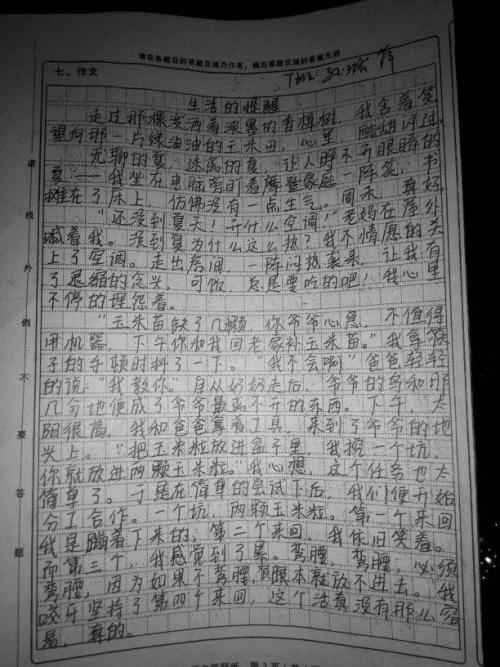 请在各题目的答题区域内作答，超出答题区域的答案无效
七、作文
7班
生活的提醒
走过那棵泼洒着浓墨的香樟树，我含着笑
望向那一片绿油油的玉米田，心里
无聊的夏，迷离的夏，让人睁不开眼睛的
夏——我坐在电脑旁盯着摩登家庭一阵笑，书
摊在了床上，仿佛没有一点生气。周末，真好。
“还没到夏天！开什么空调！”老妈在屋外
喊着我。没到夏为什么这么热？我不情愿的关
上了空调。走出房间，一阵闷热袭来，让我有
了退缩的念头，可饭，总是要吃的吧！我心里
不停的埋怨着。
“玉米苗缺了几颗，你爷爷心急，不值得
用机器，下午你和我回老家补玉米苗。”我拿筷
子的手顿时抖了一下。“我不会啊”爸爸轻轻
的说：“我教你。”自从奶奶走后，爷爷的鸟和那
几分地便成了爷爷最离不开的东西。下午，太
阳很高，我和爸爸拿着工具，来到了爷爷的地
头上。“把玉米粒放进盆子里，我挖一个坑，
你就放进两颗玉米粒。”我心想，这个任务也太
简单了。于是在简单的尝试下后，我们便开始
分工合作。一个坑，两颗玉米粒。第一个来回
我是蹦着下来的，第二个来回，我依旧笑着。
而第三个，我感觉到了累。弯腰，弯腰，必须
弯腰，因为如果不弯腰，跟本就放不进去。我
咬牙坚持了第四个来回，这个活真没有那么容
易，真的。